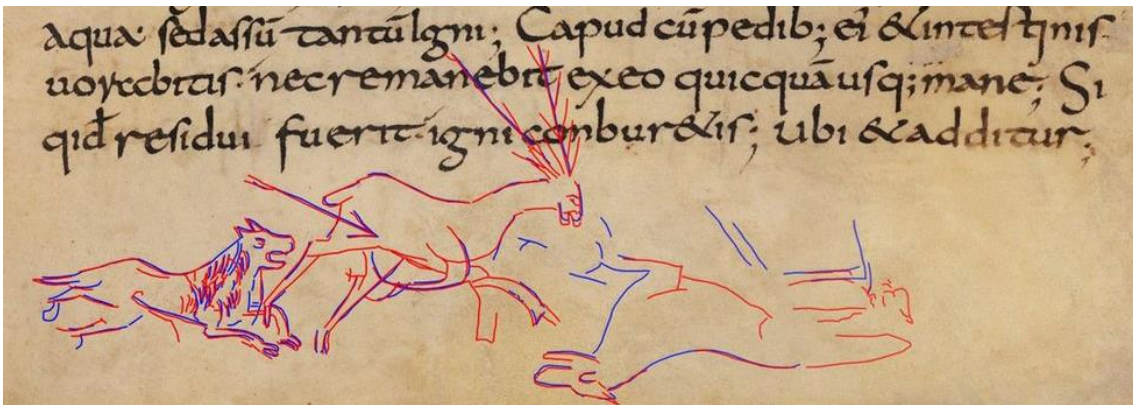 aqua· sed assū tantū Igni; Capud cū pedib; ei &intestinis·
uorabitis· nec remanebit ex eo quicquā usq; mane; Si
qid residui fuerit· igni combur&is; Ubi & additur;